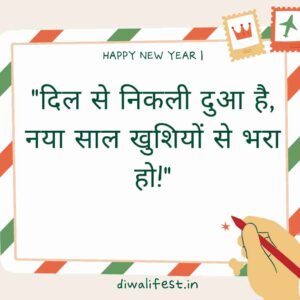 HAPPY NEW YEAR |
"दिल से निकली दुआ है,
नया साल खुशियों से भरा
हो!"
diwalifest.in